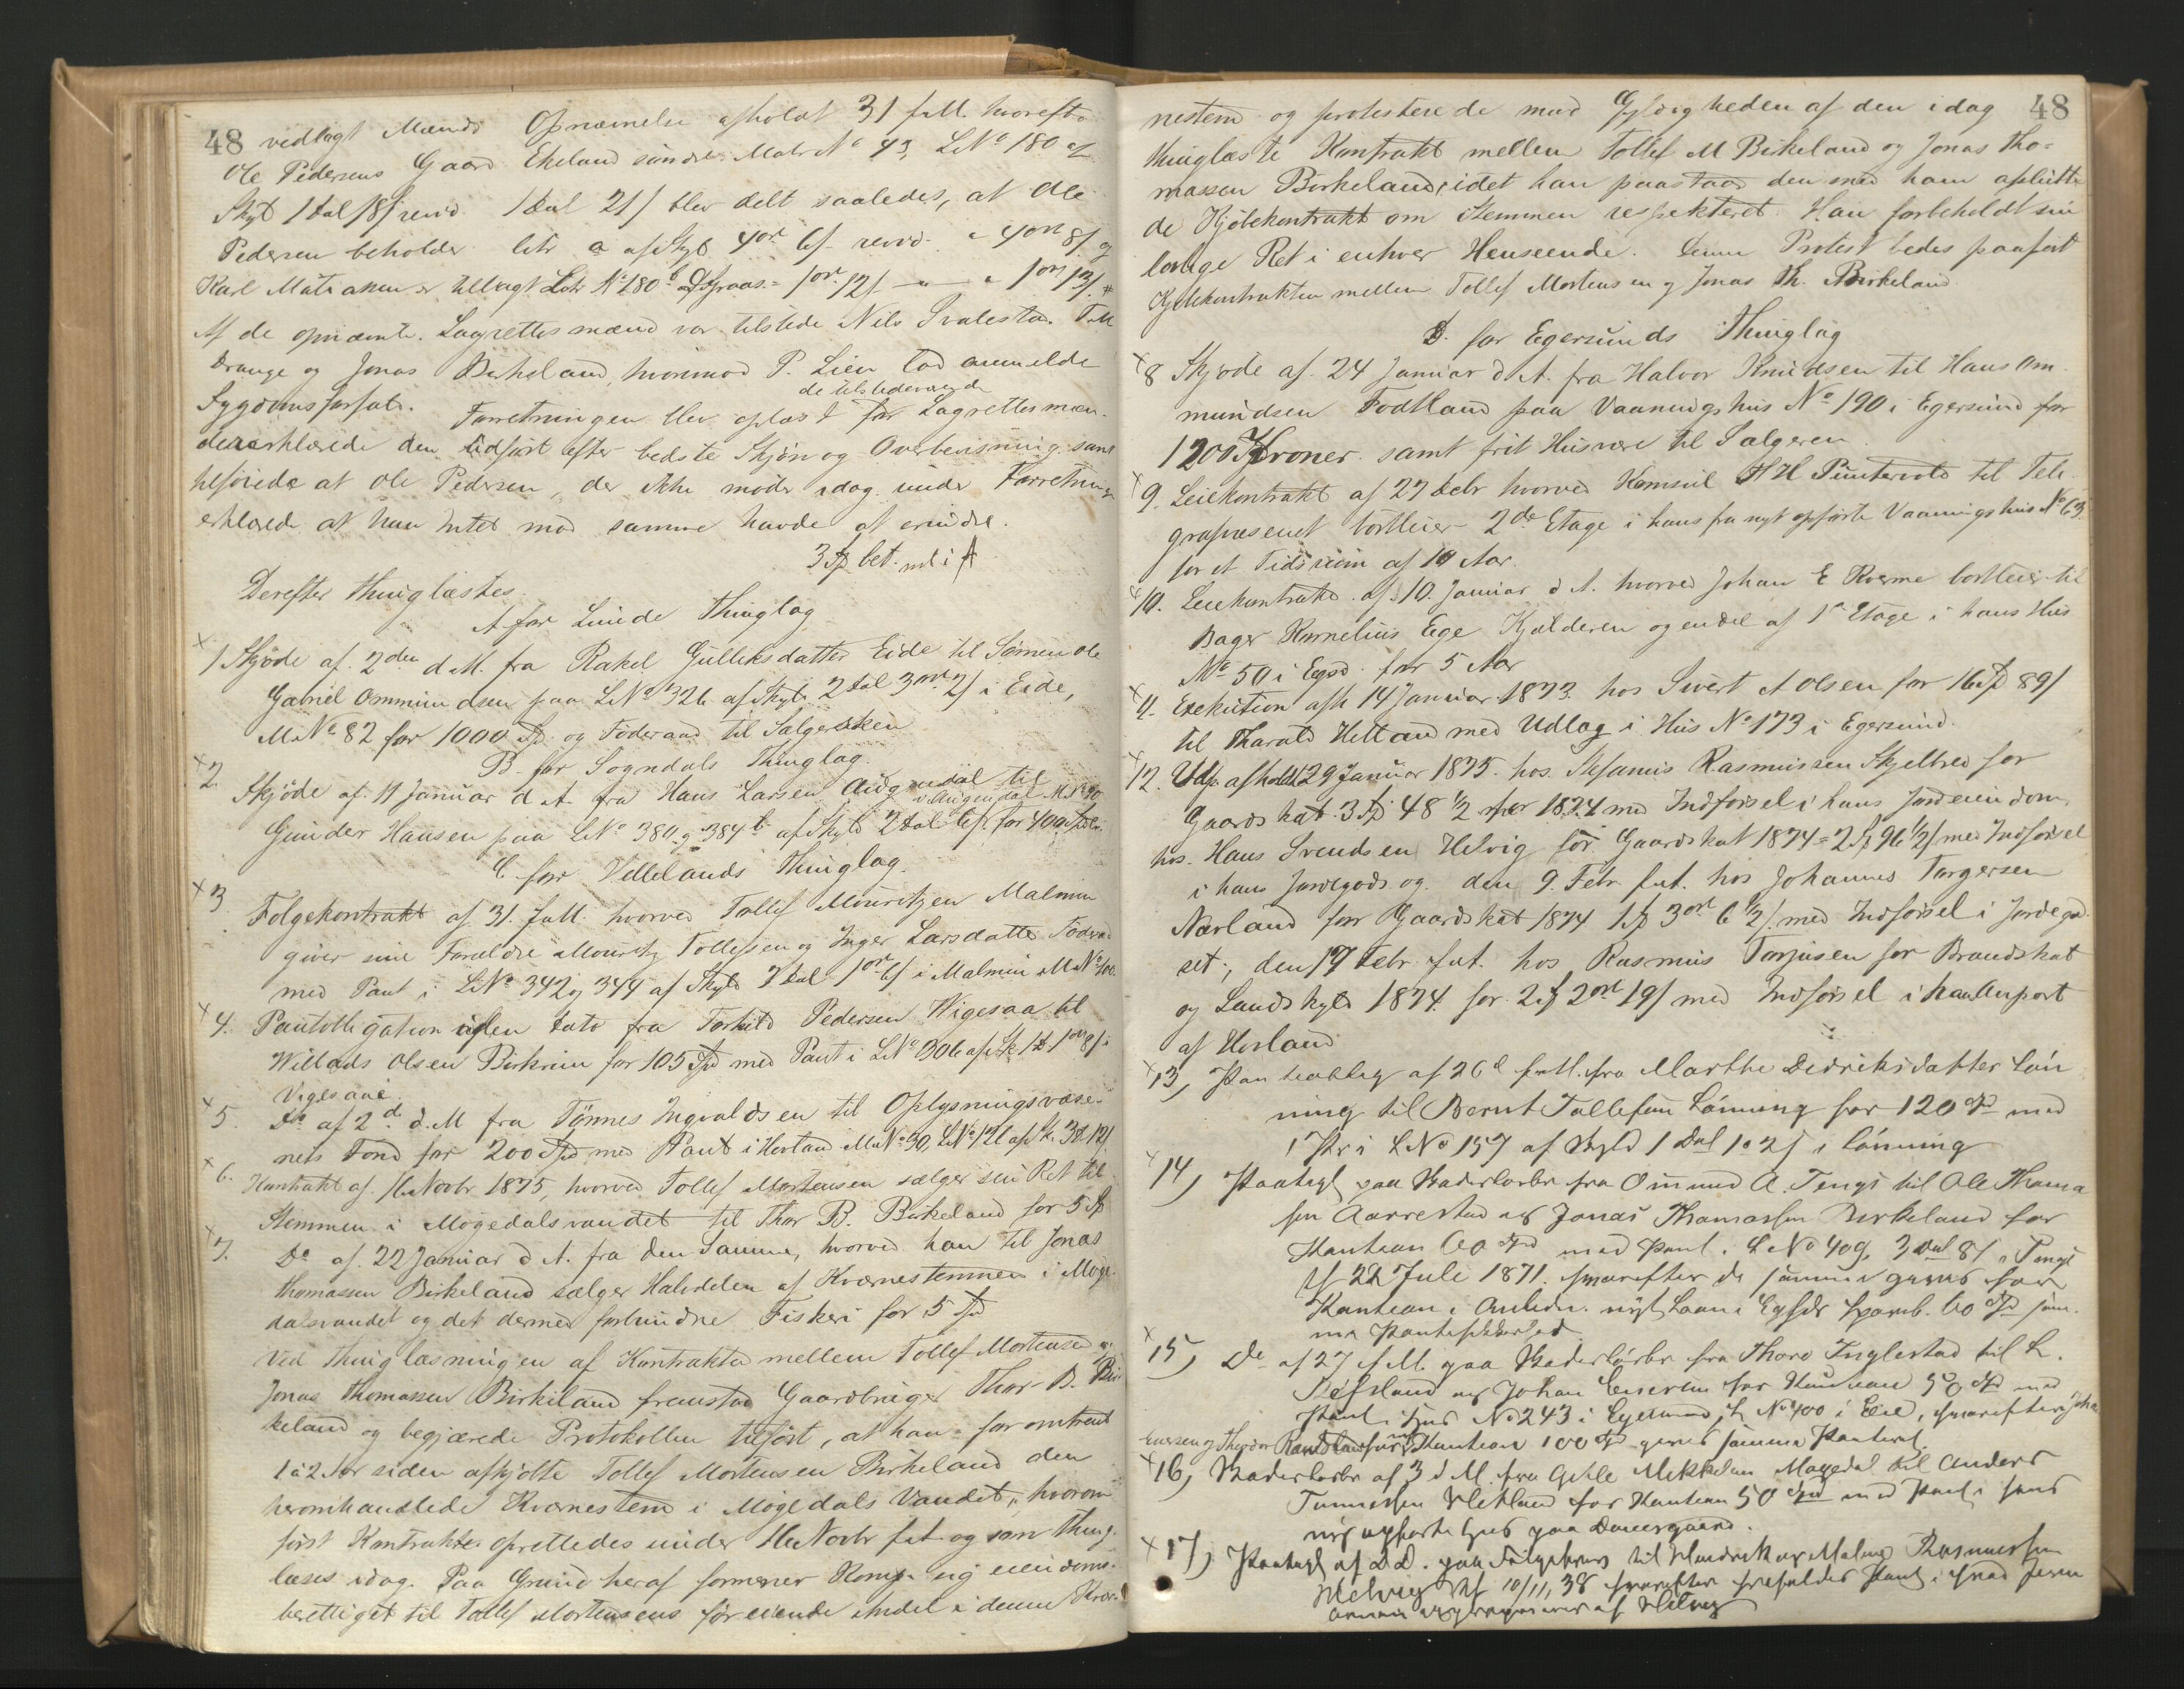 48 vedlagt Mænds Opnævnelse afholdt 31 f.M. hvorefter
Ole Pedersens Gaard Ekeland søndre Matr No 43, LNo 180 af
Skyld 1 Dal 18/ revid. 1 Dal 21/ blev delt saaledes, at Ole
Pedersen beholder litr a af Skyld 4 ort 6/ revid. 4 ort 8/ og
Karl Matiasen er tillagt LNo 180 b 1 ort 12/ — " — 1 ort 13/
Af de opnævnte Lagrettesmænd var tilstede Nils Svalestad. T M
Drange og Jonas Birkeland, hvorimod P. Lien lod anmelde
Sygdomsforfald. Forretningen blev oplæst for de tilstedeværende Lagrettesmæn-
der erklærede den udført efter bedste Skjøn og Overbevisning samt
tilføiede at Ole Pedersen, der ikke møder idag under Forretningen
erklærede at han Intet mod samme havde at erindre.
3 Spd bet. nd i A
Derefter thinglæstes
A for Lunde Thinglag
1 Skjøde af 2den d.M. fra Rakel Gulleksdatter Eide til Sønnen Ole
Gabriel Ommundsen paa LNo 326 af Skyld 2 Dal 3 ort 2/ i Eide,
MNo 82 for 1000 Spd og Føderaad til Sælgersken
B. for Sogndals Thinglag.
2. Skjøde af 11 Januar d.A. fra Hans Larsen Augendal til
Gunder Hansen paa LNo 380 og 384 b af Skyld 2 Dal 6/ i Augendal M No 90 for 400 Spd
C for Hellelands Thinglag.
3. Følgekontrakt af 31. f.M. hvorved Tollef Mouritzen Malmin
giver sine Forældre Mouritz Tollefsen og Inger Larsdatter Føderaad
med Pant i LNo 342 og 344 af Skyld 2 Dal 1 ort 6/ i Malmin MNo 100
4. Pantobligation uden Dato fra Torkild Pedersen Vigesaa til
Willads Olsen Birkrem for 105 Spd med Pant i LNo 306 af Sk. 1 D 1 ort 8/ i
Vigesaae.
5. Do af 2d d.M fra Tönnes Ingvaldsen til Oplysningsvæse-
nets Fond for 200 Spd med Pant i Hovland MNo 30, LNo 121 af Sk. 3 D 12/
6. Kontrakt af 16 Novbr 1875, hvorved Tollef Mortensen sælger sin Ret til
Stemmen i Møgedalsvandet til Thor B. Birkeland for 5 Spd
7. Do af 22 Januar d.A. fra den Samme, hvorved han til Jonas
Thomassen Birkeland sælger Halvdelen af Kværnestemmen i Møge-
dalsvandet og det dermed forbundne Fiskeri for 5 Spd
Ved Thinglæsningen af Kontrakten mellem Tollef Mortensen og
Jonas Thomassen Birkeland fremstod Gaardbruger Thor B. Bir-
keland og begjærede Protokollen tilført, at han for omtrent
1 à 2 Aar siden afkjøbte Tollef Mortensen Birkeland den
heromhandlede Kværnestem i Møgedals Vandet, hvorom
først Kontrakter oprettedes under 16 Novbr f.A. og som thing-
læses idag. Paa Grund heraf formener Komp. sig eiendoms-
berettiget til Tollef Mortensens før eiende Andel i denne Kvær-
48
nestem og protesterede mod Gyldigheden af den idag
thinglæste Kontrakt mellem Tollef M Birkeland og Jonas Tho-
massen Birkeland, idet han paastaar den med ham afslutte-
de Kjøbekontrakt om Stemmen respekteret. Han forbeholdt sin
lovlige Ret i enhver Henseende. Denne Protest bedes paaført
Kjøbekontrakten mellem Tollef Mortensen og Jonas Th. Birkeland
D. for Egersunds Thinglag
8 Skjøde af 24 Januar d.A. fra Halvor Knudsen til Hans Om-
mundsen Fodtland paa Vaaningshus No 190 i Egersund for
1200 Kroner samt frit Husvære til Sælgeren.
9. Leiekontrakt af 27 Debr hvorved Konsul H H Puntervold til Tele-
grafvæsenet bortleier 2de Etage i hans fra nyt opførte Vaaningshus No 63
for et Tidsrum af 10 Aar.
10. Leiekontrakt af 10. Januar d.A. hvorved Johan E Kverne bortleier til
Bager Kornelius Ege Kjælderen og endel af 1ste Etage i hans Hus
No 50 i Egsd. for 5 Aar
11. Exekution afh 14 Januar 1873 hos Sivert A Olsen for 16 Spd 89/
til Tharald Hetland med Udlæg i Hus No 173 i Egersund.
12. Udp. afholdt 29 Januar 1875. hos Stefanus Rasmussen Skjelbred for
Gaardskat 3 Spd 48 1/2 / for 1874 med Indførsel i hans Jordeiendom,
hos Hans Svendsen Helvig for Gaardskat 1874 = 2 Spd 96 1/2 / med Indførsel
i hans Jordegods og den 9. Febr f.A. hos Johannes Torgersen
Nærland for Gaardskat 1874 1 Spd 3 ort 6 1/2 / med Indførsel i Jordegod-
set, den 17 Febr f.A. hos Rasmus Torjusen for Brandskat
og Landskyld 1874 for 2 Spd 2 ort 19/ med Indførsel i
af Hovland
13, Panteoblig af 26d f.M. fra Marthe Didriksdatter Løn
ning til Bernt Tollefsen Lønning for 120 Spd med
1 Pr i LNo 157 af Skyld 1 Dal 1 o 2/ i Lønning
14, Paategn paa Kaderlarbr fra Ommund A. Tengs til Ole Thoma
sen Aarrestad og Jonas Thomassen Birkeland for
Kaution 60 Spd med Pant i LNo 409, 3 Dal 8/ i Tengs
af 22 Juli 1871. hvorefter de samme gives for
Kaution i Anledn. nyt Laan i Egsds Spareb. 60 Spd sam-
me Pantesikkerhed
15, Do af 27 f.M. paa Kaderlarbr fra Thore Inglestad til L.
Refsland og Johan Enersen for Kaution 50 Spd med
Pant i Hus No 243 i Egersund, L No 400 i Eie, hvorefter Joha
Enersen og Theodor for Kaution 100 Spd gives samme Panteret.
16, Kaderlarbr af 3 d.M. fra Gabriel Mikkelsen Møgedal til Anders
Tønnessen Hetland for Kaution 50 Spd med Pant i hans
nyopførte Hus paa Damsgaard.
17, Paategn af D.D. paa Følgebrev til Hendrik og Malene Rasmussen
Helvig af 10/11, 38 hvorefter frafaldes Pant i
af Helvig